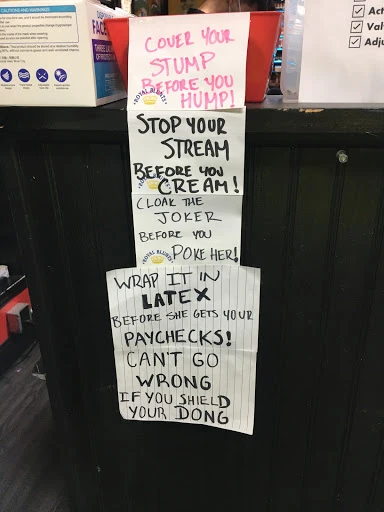 CAUTIONS AND WARNINGS
FACE
COVER YOUR
STUMP
BEFORE YOU
HUMP!
ROYAL BLUNTS
STOP YOUR
STREAM
BEFORE YOU
CREAM!
CLOAK THE
JOKER
BEFORE YOU
POKE HER!
ROYAL BLUNTS
WRAP IT IN
LATEX
BEFORE SHE GETS YOUR
PAYCHECKS!
CAN'T GO
WRONG
IF YOU SHIELD
YOUR DONG